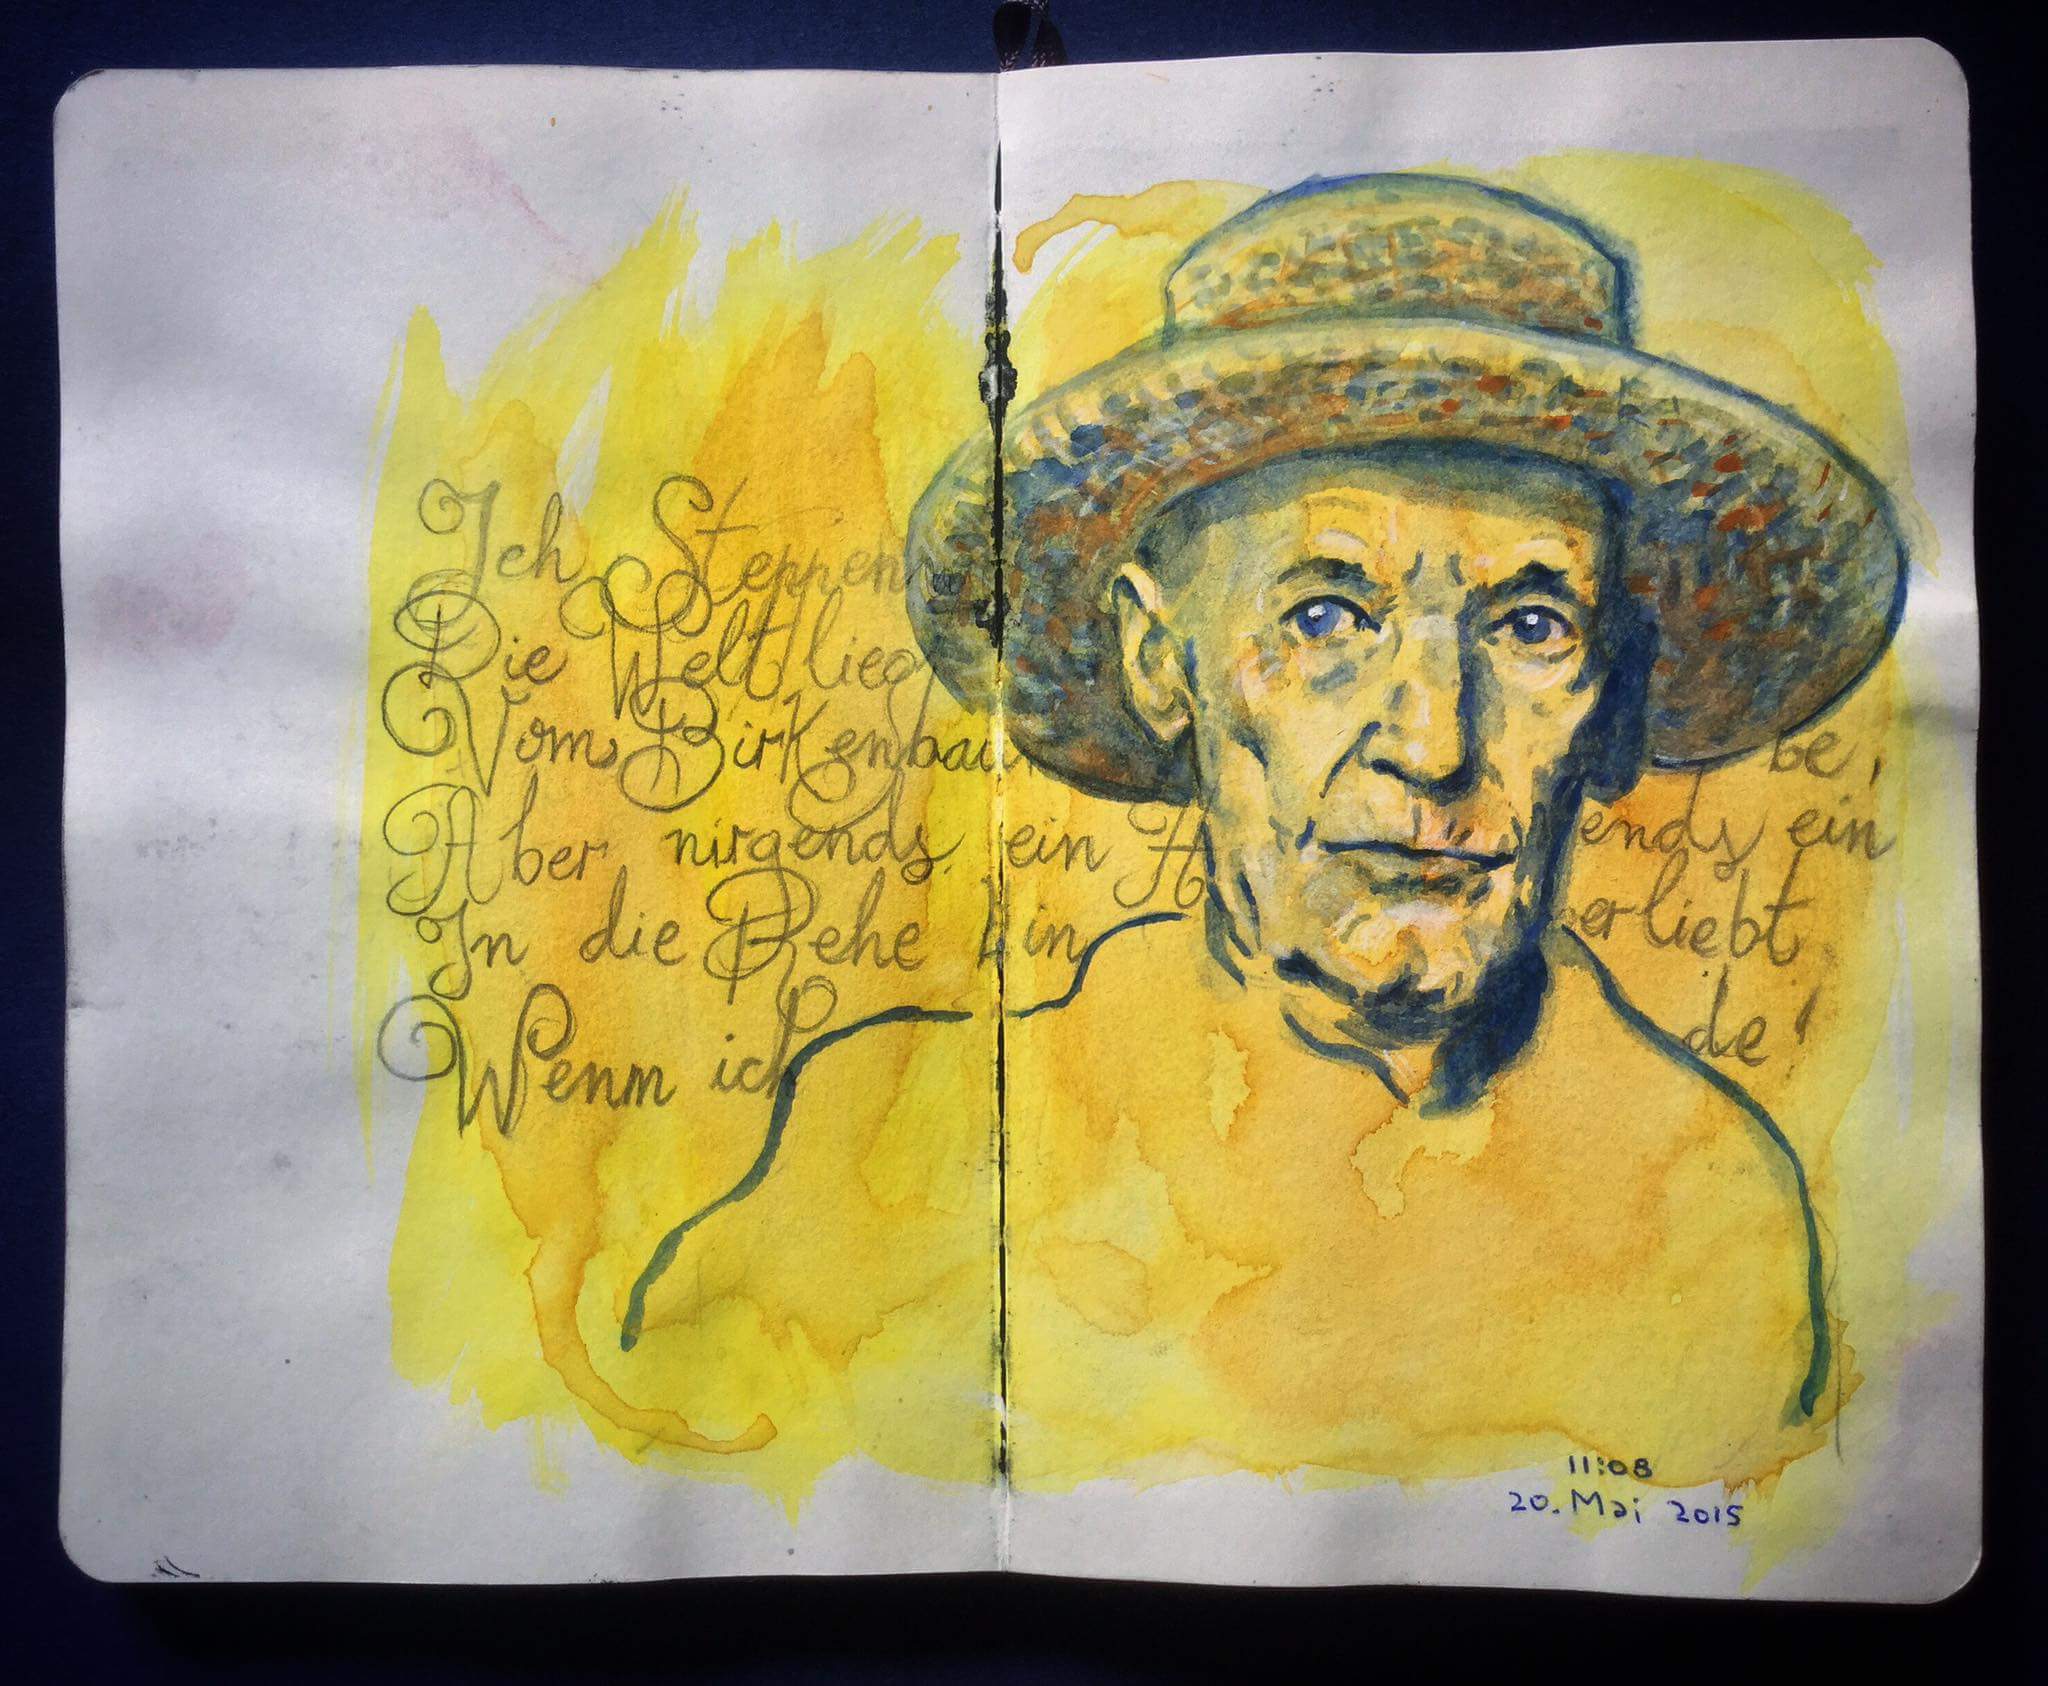 Ich Steppen
Die Welt lieg
Vom Birkenbau be,
Aber nirgends ein H ends ein
In die Rehe bin erliebt
Wenn ich de!
11:08
20. Mai 2015